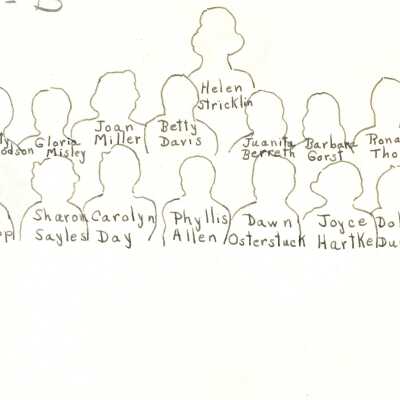 - B
Helen
Stricklin
ty
odson
Gloria
Misley
Joan
Miller
Betty
Davis
Juanita
Berreth
Barbara
Gorst
Rona
Tho
pp
Sharon
Sayles
Carolyn
Day
Phyllis
Allen
Dawn
Osterstuck
Joyce
Hartke
Dol
Du